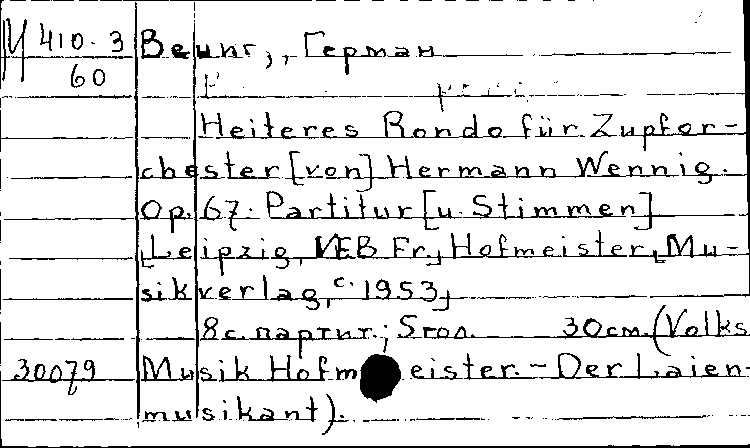 М 410-3
60
Вениг, Герман
Heiteres Rondo für Zupfor-
chester [von] Hermann Wennig.
Op. 67. Partitur [u. Stimmen]
[Leipzig, VEB Fr., Hofmeister, Mu-
sikverlag, c. 1953]
8 с. партит.; 5 гол. 30 см. (Volks
30079 Musik Hofmeister. - Der Laien-
musikant).